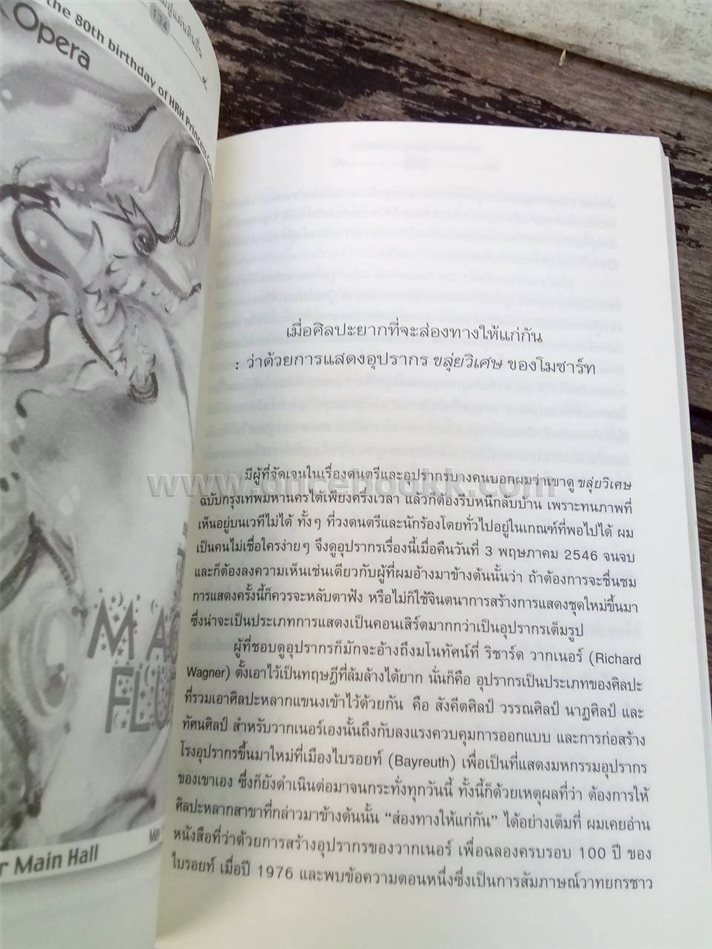 134
Opera
the 80th birthday of HRH Princess
MA
FLU
r Main Hall
เมื่อศิลปะยากที่จะส่องทางให้แก่กัน
: ว่าด้วยการแสดงอุปรากร ขลุ่ยวิเศษ ของโมซาร์ท
มีผู้ที่จัดเจนในเรื่องดนตรีและอุปรากรบางคนบอกผมว่าเขาดู ขลุ่ยวิเศษ
ฉบับกรุงเทพมหานครได้เพียงครึ่งเวลา แล้วก็ต้องรีบหนีกลับบ้าน เพราะทนภาพที่
เห็นอยู่บนเวทีไม่ได้ ทั้งๆ ที่วงดนตรีและนักร้องโดยทั่วไปอยู่ในเกณฑ์ที่พอไปได้ ผม
เป็นคนไม่เชื่อใครง่ายๆ จึงดูอุปรากรเรื่องนี้เมื่อคืนวันที่ 3 พฤษภาคม 2546 จนจบ
และก็ต้องลงความเห็นเช่นเดียวกับผู้ที่ผมอ้างมาข้างต้นนั้นว่า ถ้าต้องการจะชื่นชม
การแสดงครั้งนี้ก็ควรจะหลับตาฟัง หรือไม่ก็ใช้จินตนาการสร้างการแสดงชุดใหม่ขึ้นมา
ซึ่งน่าจะเป็นประเภทการแสดงเป็นคอนเสิร์ตมากกว่าเป็นอุปรากรเต็มรูป
ผู้ที่ชอบดูอุปรากรก็มักจะอ้างถึงมโนทัศน์ที่ ริชาร์ด วากเนอร์ (Richard
Wagner) ตั้งเอาไว้เป็นทฤษฎีที่ล้มล้างได้ยาก นั่นก็คือ อุปรากรเป็นประเภทของศิลปะ
ที่รวมเอาศิลปะหลากแขนงเข้าไว้ด้วยกัน คือ สังคีตศิลป์ วรรณศิลป์ นาฏศิลป์ และ
ทัศนศิลป์ สำหรับวากเนอร์เองนั้นถึงกับลงแรงควบคุมการออกแบบ และการก่อสร้าง
โรงอุปรากรขึ้นมาใหม่ที่เมืองไบรอยท์ (Bayreuth) เพื่อเป็นที่แสดงมหกรรมอุปรากร
ของเขาเอง ซึ่งก็ยังดำเนินต่อมาจนกระทั่งทุกวันนี้ ทั้งนี้ก็ด้วยเหตุผลที่ว่า ต้องการให้
ศิลปะหลากสาขาที่กล่าวมาข้างต้นนั้น “ส่องทางให้แก่กัน” ได้อย่างเต็มที่ ผมเคยอ่าน
หนังสือที่ว่าด้วยการสร้างอุปรากรของวากเนอร์ เพื่อฉลองครบรอบ 100 ปี ของ
ไบรอยท์ เมื่อปี 1976 และพบข้อความตอนหนึ่งซึ่งเป็นการสัมภาษณ์วาทยกรชาว